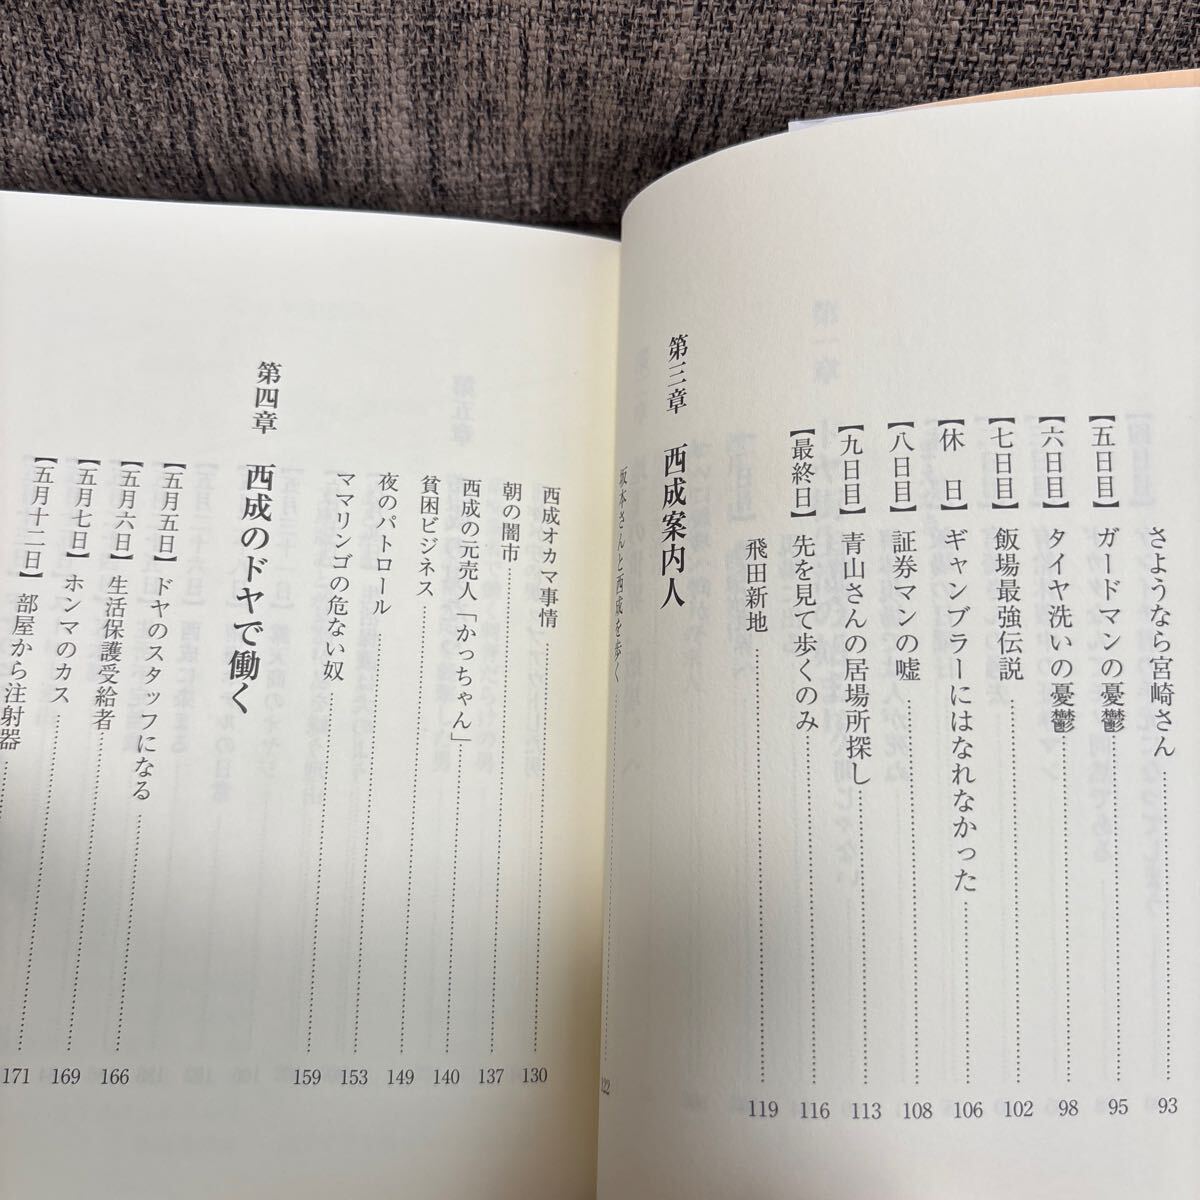 さようなら宮崎さん 93
【五日目】ガードマンの憂鬱 95
【六日目】タイヤ洗いの憂鬱 98
【七日目】飯場最強伝説 102
【休　日】ギャンブラーにはなれなかった 106
【八日目】証券マンの嘘 108
【九日目】青山さんの居場所探し 113
【最終日】先を見て歩くのみ 116
飛田新地 119
第三章　西成案内人
坂本さんと西成を歩く 122
西成オカマ事情 130
朝の闇市 137
西成の元売人「かっちゃん」 140
貧困ビジネス 149
夜のパトロール 153
ママリンゴの危ない奴 159
第四章　西成のドヤで働く
【五月五日】ドヤのスタッフになる 166
【五月六日】生活保護受給者 169
【五月七日】ホンマのカス 171
【五月十二日】部屋から注射器